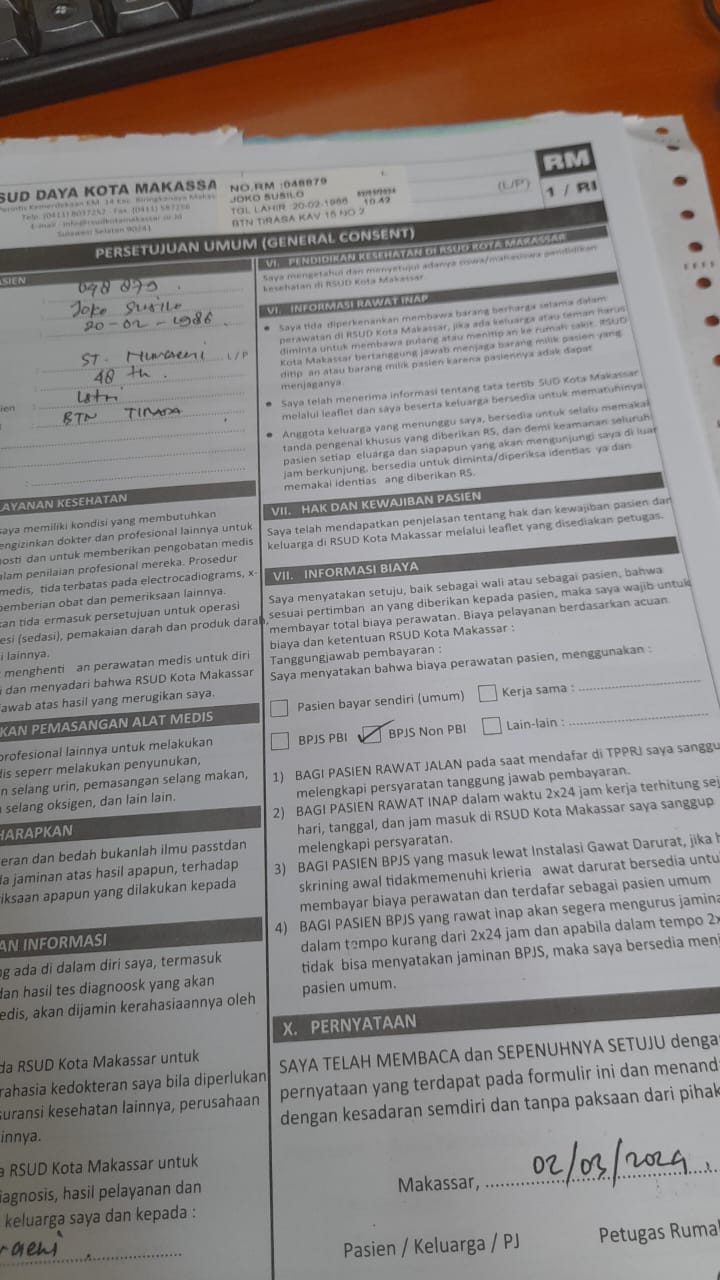 SUD DAYA KOTA MAKASSA
Perintis Kemerdekaan KM. 14 Kec. Biringkanaya Makas
Telp. (0411) 8037252 - Fax. (0411) 587256
E-mail : info@rsudkotamakassar.or.id
Sulawesi Selatan 90241
NO.RM :048879
JOKO SUSILO
TGL LAHIR 20-02-1986
10.42
BTN TIRASA KAV 15 NO 2
(L/P)
RM
1 / RI
PERSETUJUAN UMUM (GENERAL CONSENT)
ASIEN
Joko Susilo
20-02-1986
L/P
48 th
Istri
BTN
ien
LAYANAN KESEHATAN
saya memiliki kondisi yang membutuhkan
engizinkan dokter dan profesional lainnya untuk
nosti dan untuk memberikan pengobatan medis
alam penilaian profesional mereka. Prosedur
medis, tida terbatas pada electrocadiograms, x-
pemberian obat dan pemeriksaan lainnya.
kan tida ermasuk persetujuan untuk operasi
esi (sedasi), pemakaian darah dan produk darah,
i lainnya.
menghenti an perawatan medis untuk diri
i dan menyadari bahwa RSUD Kota Makassar
awab atas hasil yang merugikan saya.
KAN PEMASANGAN ALAT MEDIS
profesional lainnya untuk melakukan
lis seperr melakukan penyunukan,
n selang urin, pemasangan selang makan,
selang oksigen, dan lain lain.
HARAPKAN
eran dan bedah bukanlah ilmu passtdan
la jaminan atas hasil apapun, terhadap
iksaan apapun yang dilakukan kepada
AN INFORMASI
ng ada di dalam diri saya, termasuk
dan hasil tes diagnoosk yang akan
edis, akan dijamin kerahasiaannya oleh
da RSUD Kota Makassar untuk
rahasia kedokteran saya bila diperlukan
suransi kesehatan lainnya, perusahaan
innya.
a RSUD Kota Makassar untuk
iagnosis, hasil pelayanan dan
keluarga saya dan kepada :
raeni
VI. PENDIDIKAN KESEHATAN DI RSUD KOTA MAKASSAR
Saya mengetahui dan menyetujui adanya siswa/mahasiswa pendidikan
kesehatan di RSUD Kota Makassar.
VI. INFORMASI RAWAT INAP
• Saya tida diperkenankan membawa barang berharga selama dalam
perawatan di RSUD Kota Makassar, jika ada keluarga atau teman harus
diminta untuk membawa pulang atau menitipan ke rumah sakit. RSUD
Kota Makassar bertanggung jawab menjaga barang milik pasien yang
ditip an atau barang milik pasien karena pasiennya adak dapat
menjaganya.
• Saya telah menerima informasi tentang tata tertib SUD Kota Makassar
melalui leaflet dan saya beserta keluarga bersedia untuk mematuhinya.
• Anggota keluarga yang menunggu saya, bersedia untuk selalu memakai
tanda pengenal khusus yang diberikan RS, dan demi keamanan seluruh
pasien setiap eluarga dan siapapun yang akan mengunjungi saya di luar
jam berkunjung, bersedia untuk diminta/diperiksa identias ya dan
memakai identias ang diberikan RS.
VII. HAK DAN KEWAJIBAN PASIEN
Saya telah mendapatkan penjelasan tentang hak dan kewajiban pasien dan
keluarga di RSUD Kota Makassar melalui leaflet yang disediakan petugas.
VII. INFORMASI BIAYA
Saya menyatakan setuju, baik sebagai wali atau sebagai pasien, bahwa
sesuai pertimban an yang diberikan kepada pasien, maka saya wajib untuk
membayar total biaya perawatan. Biaya pelayanan berdasarkan acuan
biaya dan ketentuan RSUD Kota Makassar :
Tanggungjawab pembayaran :
Saya menyatakan bahwa biaya perawatan pasien, menggunakan :
Pasien bayar sendiri (umum) Kerja sama :
BPJS PBI BPJS Non PBI Lain-lain :
1) BAGI PASIEN RAWAT JALAN pada saat mendafar di TPPRJ saya sanggu
melengkapi persyaratan tanggung jawab pembayaran.
2) BAGI PASIEN RAWAT INAP dalam waktu 2x24 jam kerja terhitung sej
hari, tanggal, dan jam masuk di RSUD Kota Makassar saya sanggup
melengkapi persyaratan.
3) BAGI PASIEN BPJS yang masuk lewat Instalasi Gawat Darurat, jika h
skrining awal tidakmemenuhi krieria awat darurat bersedia untu
membayar biaya perawatan dan terdafar sebagai pasien umum
4) BAGI PASIEN BPJS yang rawat inap akan segera mengurus jamina
dalam tempo kurang dari 2x24 jam dan apabila dalam tempo 2x
tidak bisa menyatakan jaminan BPJS, maka saya bersedia menj
pasien umum.
X. PERNYATAAN
SAYA TELAH MEMBACA dan SEPENUHNYA SETUJU denga
pernyataan yang terdapat pada formulir ini dan menand
dengan kesadaran semdiri dan tanpa paksaan dari pihak
Makassar, 02/03/2024
Pasien / Keluarga / PJ Petugas Ruma